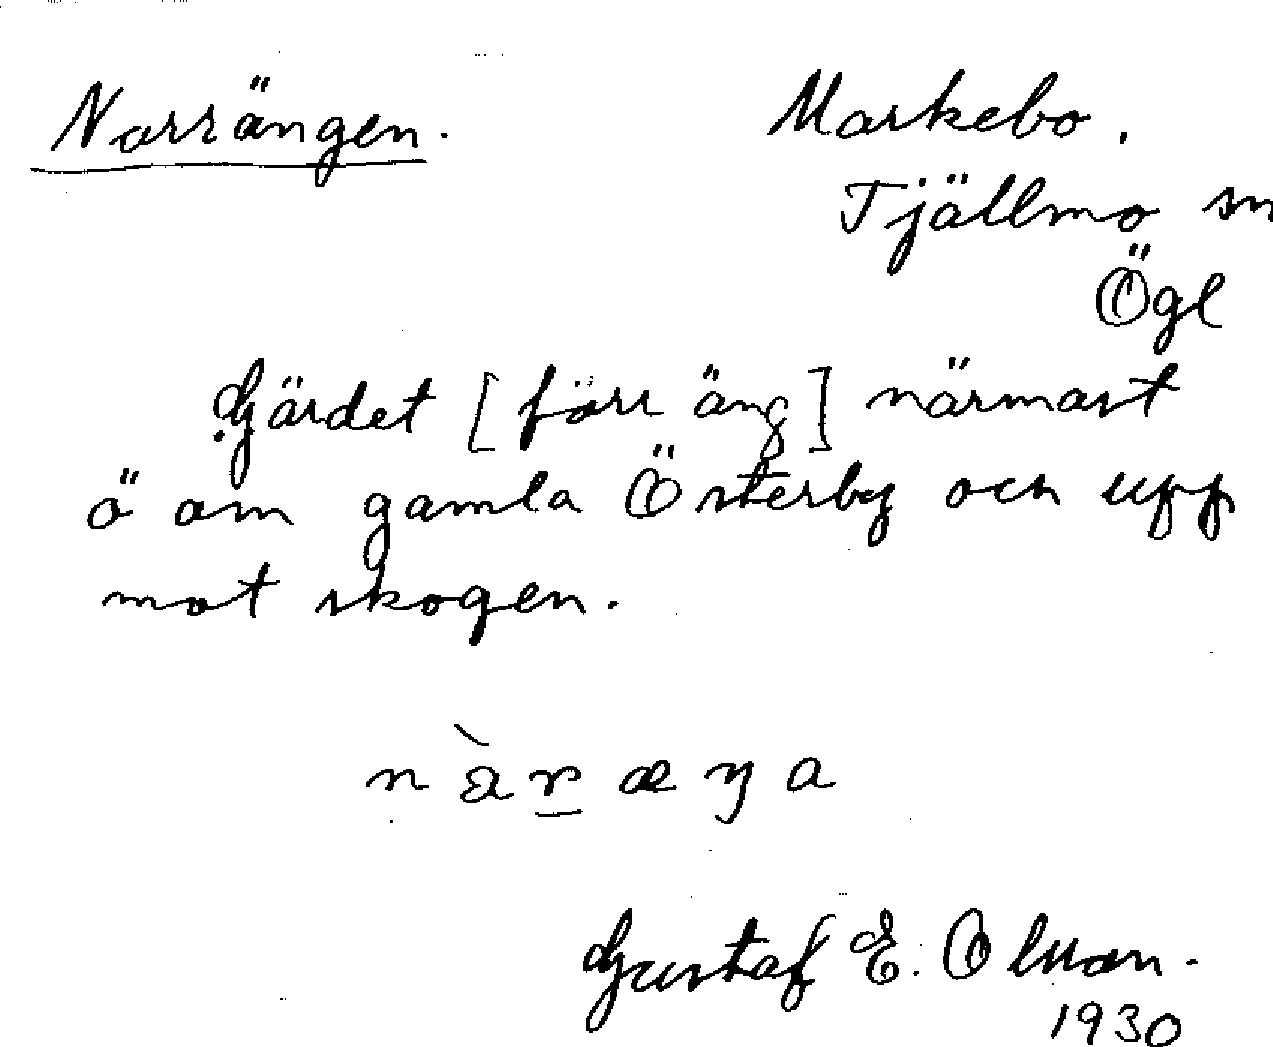 Norrängen. Markebo.
Tjällmo sn
Ögl
Gärdet [förr äng] närmast
ö om gamla Österby och upp
mot skogen.
Gustaf E. Olson.
1930